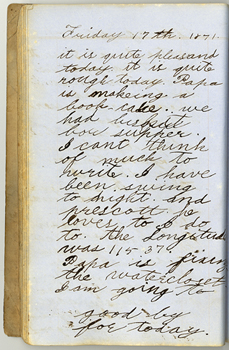 Friday 17th. 1871.
it is quite pleasand
today it is quite
rough today. Papa
is makeing a
book case.. we
had biskeit
for supper.
I cant think
of much to
write. I have
been swing
to night. and
prescott he
loves to I do
to. the Longetude
was 115.37
Papa is fixing
the watercloset
I am going to
good by
for today.